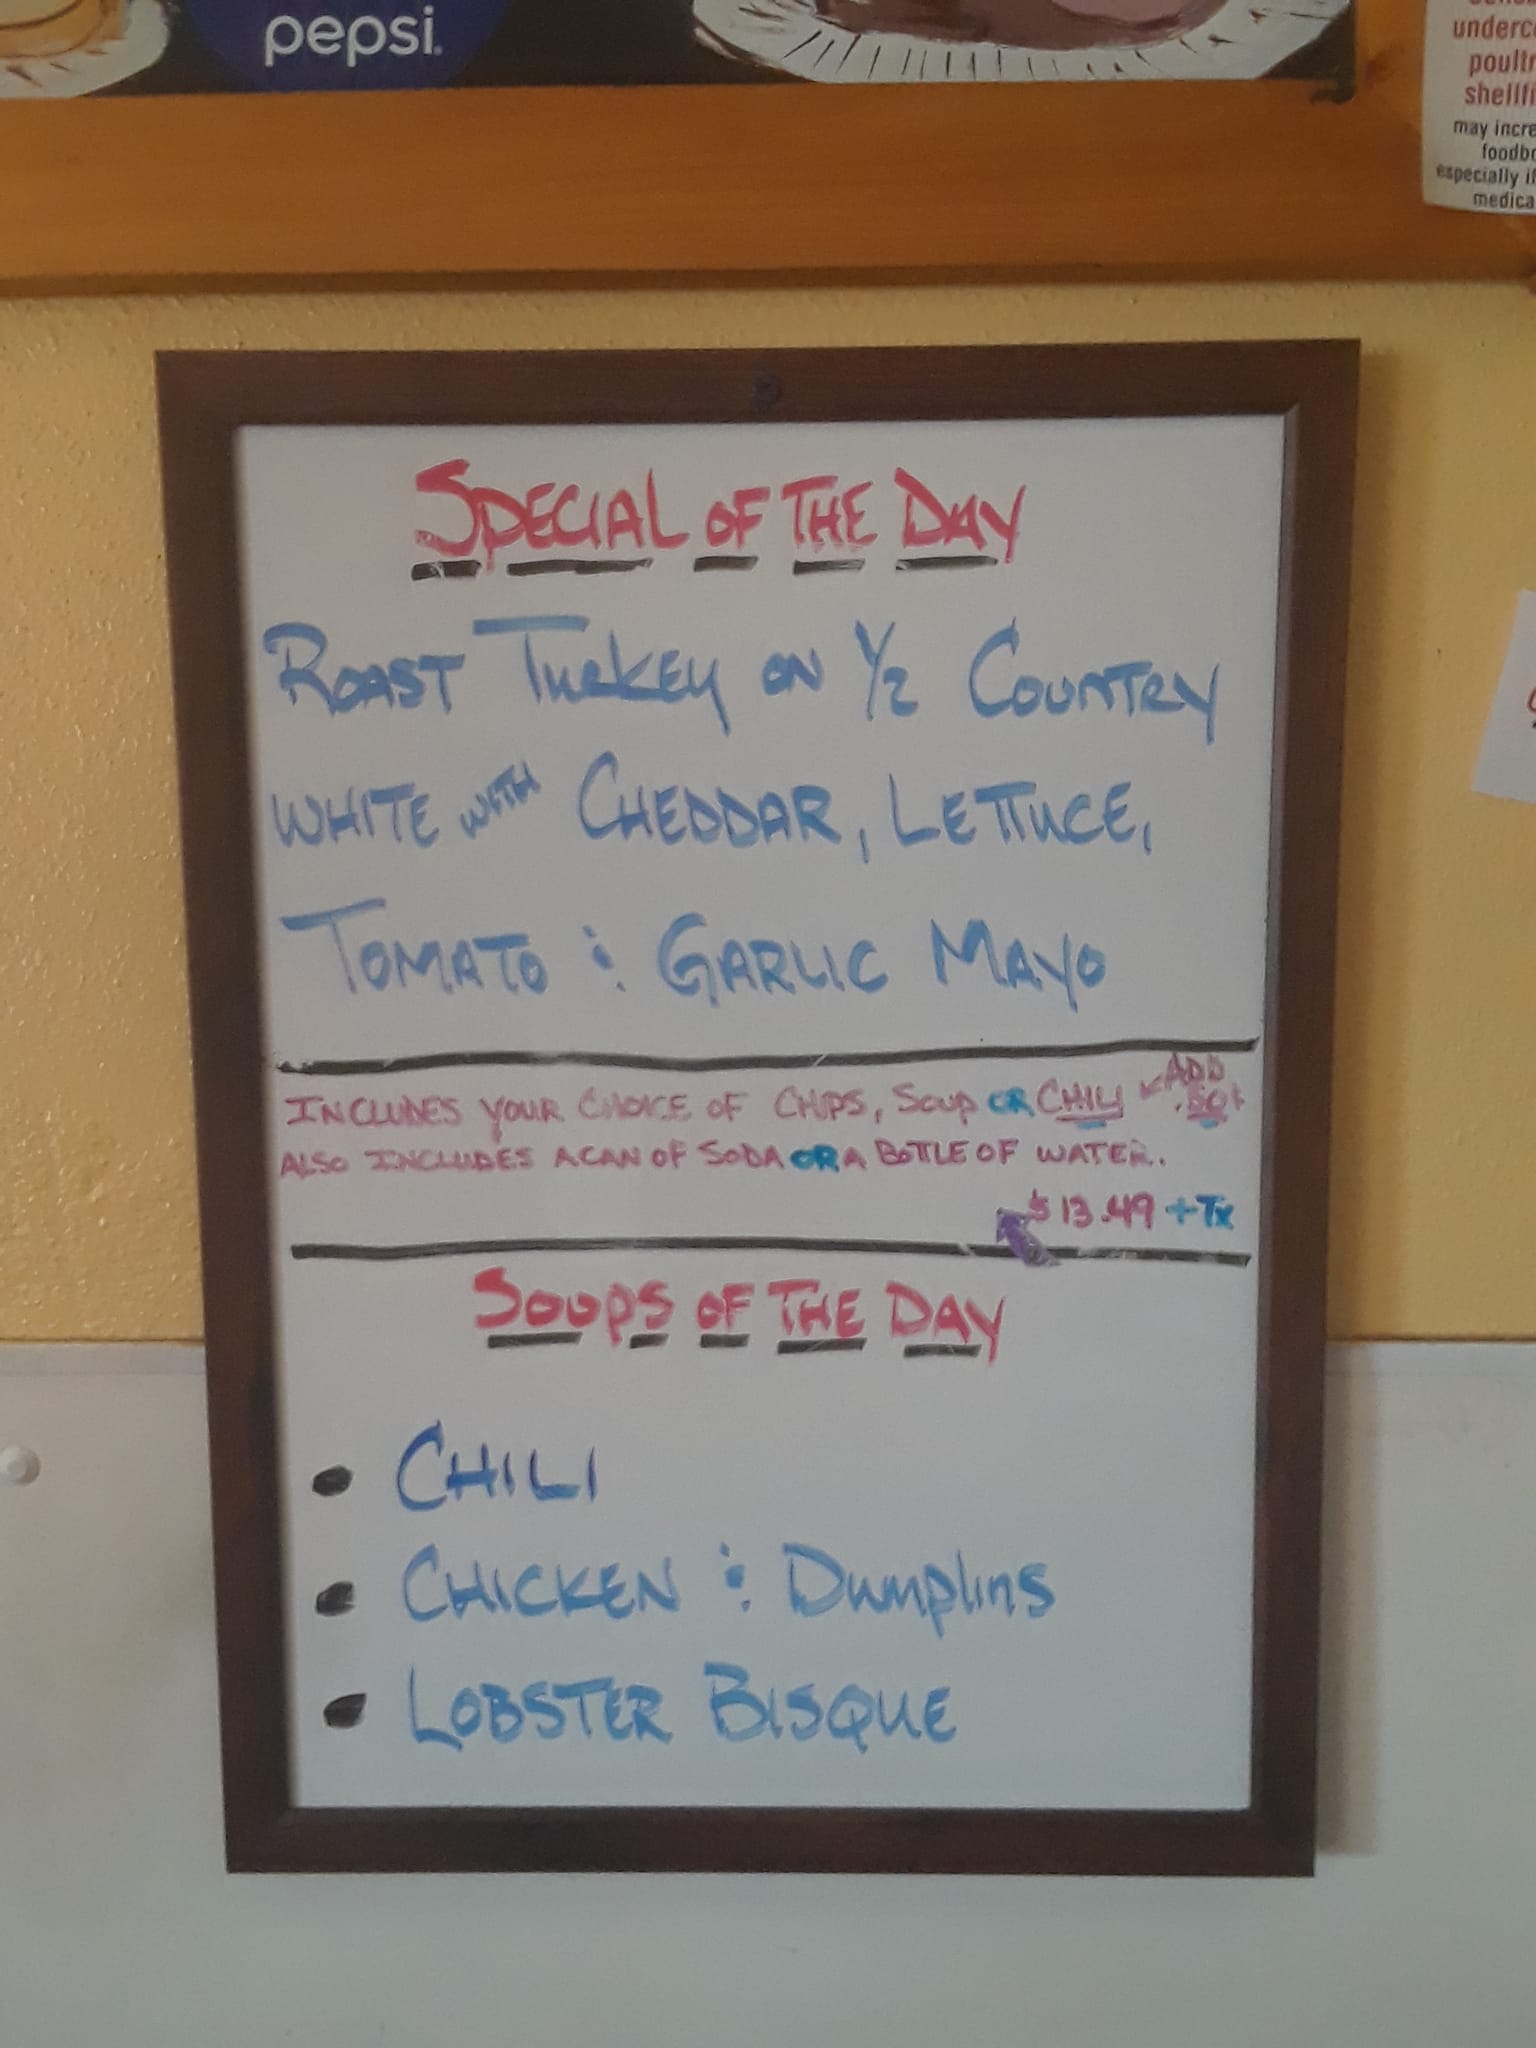 pepsi.
underc
poultr
shellfi
may incre
foodbo
especially if
medica
SPECIAL OF THE DAY
ROAST TURKEY ON 1/2 COUNTRY
WHITE WITH CHEDDAR, LETTUCE,
TOMATO & GARLIC MAYO
INCLUDES YOUR CHOICE OF CHIPS, SOUP OR CHILI ADD .50¢
ALSO INCLUDES A CAN OF SODA OR A BOTTLE OF WATER.
$13.49 + Tx
SOUPS OF THE DAY
• CHILI
• CHICKEN & Dumplins
• LOBSTER BISQUE